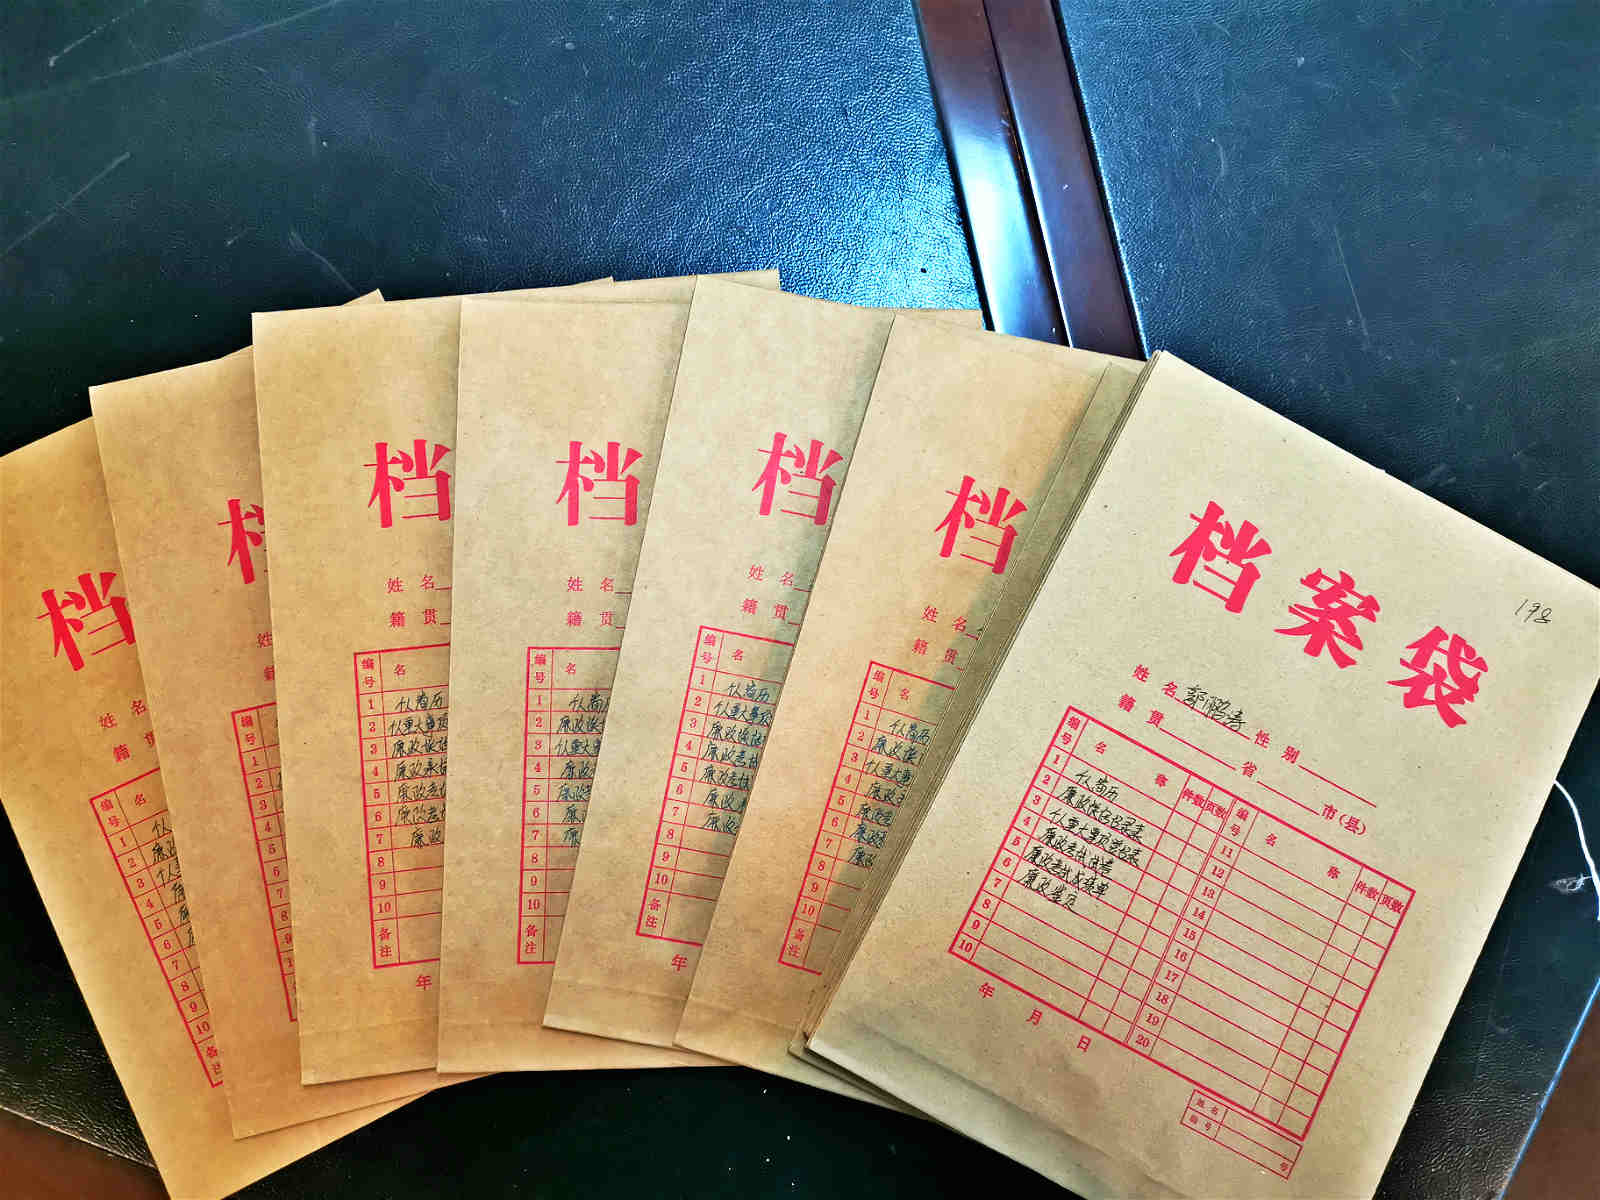 档
姓名
籍贯
编号 名
1
2 廉政
3
4
5
6
7
8
9
10
备
档
姓
籍
编号
1
2
3
4
5
6
7
8
9
档
姓名
籍贯
编号 名
1 个人简历
2 个人重大事项
3 廉政谈话
4 廉政
5 廉政考试
6 廉政考试
7 廉政
8
9
10
备注
年
档
姓名
籍贯
编号 名
1 个人简历
2 廉政谈话
3 个人重大事
4 廉政
5 廉政
6 廉
7 廉
8
9
10
备注
档
姓名
籍贯
编号 名
1 个人简历
2 个人重大事项
3 廉政谈话
4 廉政考试
5 廉政考试
6 廉政
7 廉政
8
9
10
备注
年
档
姓名
籍贯
编号 名
1 个人简历
2 廉政谈
3 个人重大事
4 廉政
5 廉政
6 廉政
7 廉政
8
9
10
备注
档案袋
198
姓名 性别
籍贯 省 市(县)
编号 名称 件数 页数 编号 名称 件数 页数
1 个人简历 11
2 廉政谈话记录表 12
3 个人重大事项登记表 13
4 廉政考试试卷 14
5 廉政考试成绩单 15
6 廉政鉴定 16
7 17
8 18
9 19
10 20
年 月 日
姓名
编号 号